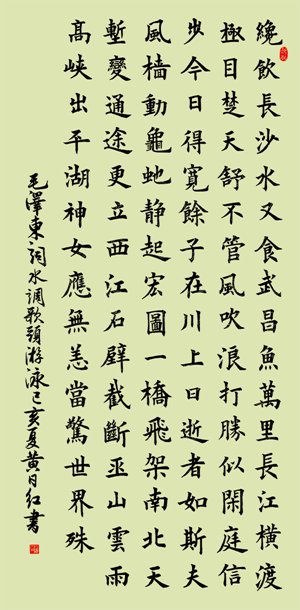 纔飲長沙水又食武昌魚萬里長江橫渡
極目楚天舒不管風吹浪打勝似閑庭信
步今日得寬餘子在川上曰逝者如斯夫
風檣動龜虵静起宏圖一橋飛架南北天
塹變通途更立西江石壁截斷巫山雲雨
髙峽出平湖神女應無恙當驚世界殊
毛澤東詞水調歌頭游泳己亥夏黄日红書